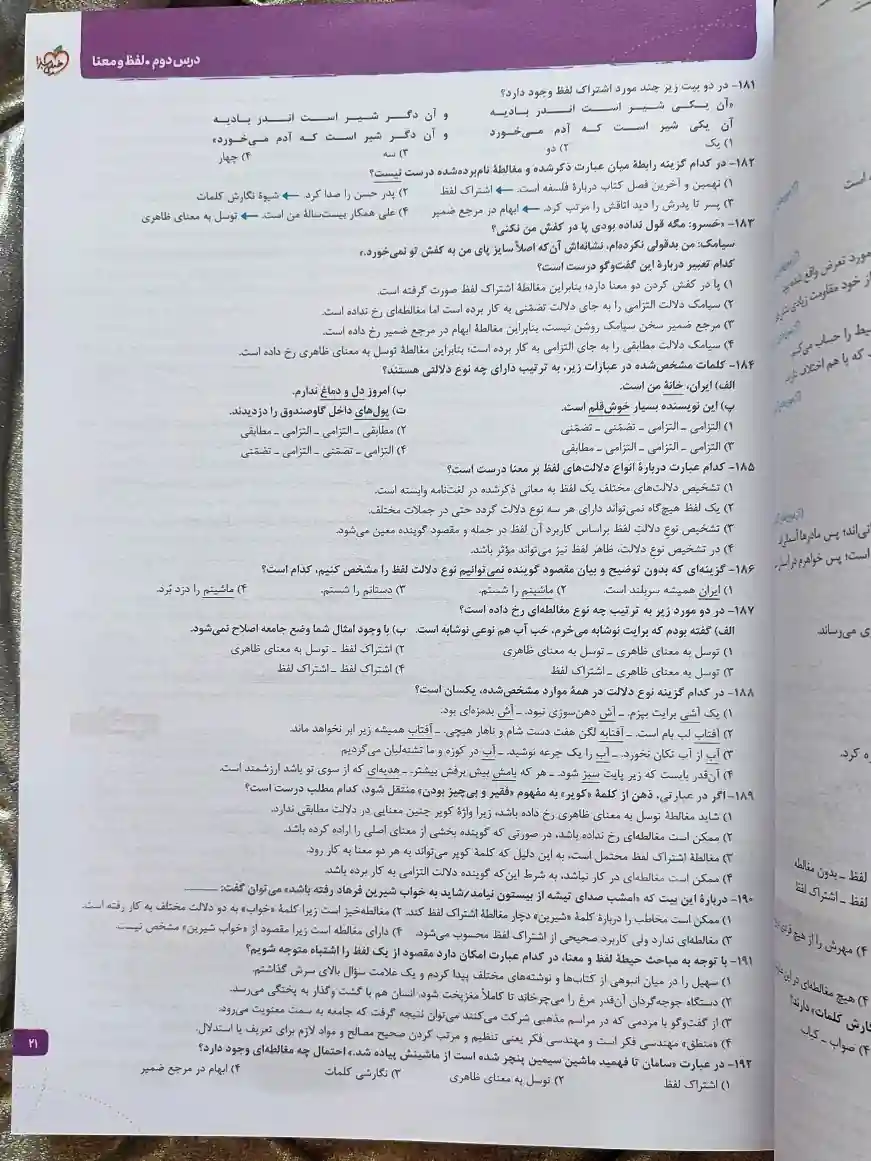 درس دوم • لفظ و معنا
۱۸۱- در دو بیت زیر چند مورد اشتراک لفظ وجود دارد؟
«آن یکی شیر است اندر بادیه و آن دگر شیر است اندر بادیه
آن یکی شیر است که آدم می‌خورد و آن دگر شیر است که آدم می‌خورد»
۱) یک ۲) دو ۳) سه ۴) چهار
۱۸۲- در کدام گزینه رابطۀ میان عبارت ذکرشده و مغالطۀ نام‌برده‌شده درست نیست؟
۱) نهمین و آخرین فصل کتاب دربارۀ فلسفه است. ← اشتراک لفظ ۲) پدر حسن را صدا کرد. ← شیوۀ نگارش کلمات
۳) پسر تا پدرش را دید اتاقش را مرتب کرد. ← ابهام در مرجع ضمیر ۴) علی همکار بیست‌سالۀ من است. ← توسل به معنای ظاهری
۱۸۳- «خسرو: مگه قول نداده بودی پا در کفش من نکنی؟
سیامک: من بدقولی نکرده‌ام، نشانه‌اش آن‌که اصلاً سایز پای من به کفش تو نمی‌خورد.»
کدام تعبیر دربارۀ این گفت‌وگو درست است؟
۱) پا در کفش کردن دو معنا دارد؛ بنابراین مغالطۀ اشتراک لفظ صورت گرفته است.
۲) سیامک دلالت التزامی را به جای دلالت تضمّنی به کار برده است اما مغالطه‌ای رخ نداده است.
۳) مرجع ضمیر سخن سیامک روشن نیست، بنابراین مغالطۀ ابهام در مرجع ضمیر رخ داده است.
۴) سیامک دلالت مطابقی را به جای التزامی به کار برده است؛ بنابراین مغالطۀ توسل به معنای ظاهری رخ داده است.
۱۸۴- کلمات مشخص‌شده در عبارات زیر، به ترتیب دارای چه نوع دلالتی هستند؟
الف) ایران، خانۀ من است. ب) امروز دل و دماغ ندارم.
پ) این نویسنده بسیار خوش‌قلم است. ت) پول‌های داخل گاوصندوق را دزدیدند.
۱) التزامی ـ التزامی ـ تضمّنی ـ تضمّنی ۲) مطابقی ـ التزامی ـ التزامی ـ مطابقی
۳) التزامی ـ التزامی ـ التزامی ـ مطابقی ۴) التزامی ـ تضمّنی ـ التزامی ـ تضمّنی
۱۸۵- کدام عبارت دربارۀ انواع دلالت‌های لفظ بر معنا درست است؟
۱) تشخیص دلالت‌های مختلف یک لفظ به معانی ذکرشده در لغت‌نامه وابسته است.
۲) یک لفظ هیچ‌گاه نمی‌تواند دارای هر سه نوع دلالت گردد حتی در جملات مختلف.
۳) تشخیص نوع دلالت لفظ براساس کاربرد آن لفظ در جمله و مقصود گوینده معین می‌شود.
۴) در تشخیص نوع دلالت، ظاهر لفظ نیز می‌تواند مؤثر باشد.
۱۸۶- گزینه‌ای که بدون توضیح و بیان مقصود گوینده نمی‌توانیم نوع دلالت لفظ را مشخص کنیم، کدام است؟
۱) ایران همیشه سربلند است. ۲) ماشینم را شستم. ۳) دستانم را شستم. ۴) ماشینم را دزد بُرد.
۱۸۷- در دو مورد زیر به ترتیب چه نوع مغالطه‌ای رخ داده است؟
الف) گفته بودم که برایت نوشابه می‌خرم، خب آب هم نوعی نوشابه است. ب) با وجود امثال شما وضع جامعه اصلاح نمی‌شود.
۱) توسل به معنای ظاهری ـ توسل به معنای ظاهری ۲) اشتراک لفظ ـ توسل به معنای ظاهری
۳) توسل به معنای ظاهری ـ اشتراک لفظ ۴) اشتراک لفظ ـ اشتراک لفظ
۱۸۸- در کدام گزینه نوع دلالت در همۀ موارد مشخص‌شده، یکسان است؟
۱) یک آشی برایت بپزم. ـ آش دهن‌سوزی نبود. ـ آش بدمزه‌ای بود.
۲) آفتاب لب بام است. ـ آفتابه لگن هفت دست شام و ناهار هیچی. ـ آفتاب همیشه زیر ابر نخواهد ماند.
۳) آب از آب تکان نخورد. ـ آب را یک جرعه نوشید. ـ آب در کوزه و ما تشنه‌لبان می‌گردیم
۴) آن‌قدر بایست که زیر پایت سبز شود. ـ هر که بامش بیش برفش بیشتر. ـ هدیه‌ای که از سوی تو باشد ارزشمند است.
۱۸۹- اگر در عبارتی، ذهن از کلمۀ «کویر» به مفهوم «فقیر و بی‌چیز بودن» منتقل شود، کدام مطلب درست است؟
۱) شاید مغالطۀ توسل به معنای ظاهری رخ داده باشد، زیرا واژۀ کویر چنین معنایی در دلالت مطابقی ندارد.
۲) ممکن است مغالطه‌ای رخ نداده باشد، در صورتی که گوینده بخشی از معنای اصلی را اراده کرده باشد.
۳) مغالطۀ اشتراک لفظ محتمل است، به این دلیل که کلمۀ کویر می‌تواند به هر دو معنا به کار رود.
۴) ممکن است مغالطه‌ای در کار نباشد، به شرط این‌که گوینده دلالت التزامی به کار برده باشد.
۱۹۰- دربارۀ این بیت که «امشب صدای تیشه از بیستون نیامد/شاید به خواب شیرین فرهاد رفته باشد» می‌توان گفت: ............
۱) ممکن است مخاطب را دربارۀ کلمۀ «شیرین» دچار مغالطۀ اشتراک لفظ کند. ۲) مغالطه‌خیز است زیرا کلمۀ «خواب» به دو دلالت مختلف به کار رفته است.
۳) مغالطه‌ای ندارد ولی کاربرد صحیحی از اشتراک لفظ محسوب می‌شود. ۴) دارای مغالطه است زیرا مقصود از «خواب شیرین» مشخص نیست.
۱۹۱- با توجه به مباحث حیطۀ لفظ و معنا، در کدام عبارت امکان دارد مقصود از یک لفظ را اشتباه متوجه شویم؟
۱) سهیل را در میان انبوهی از کتاب‌ها و نوشته‌های مختلف پیدا کردم و یک علامت سؤال بالای سرش گذاشتم.
۲) دستگاه جوجه‌گردان آن‌قدر مرغ را می‌چرخاند تا کاملاً مغزپخت شود، انسان هم با گشت وگذار به پختگی می‌رسد.
۳) از گفت‌وگو با مردمی که در مراسم مذهبی شرکت می‌کنند می‌توان نتیجه گرفت که جامعه به سمت معنویت می‌رود.
۴) «منطق» مهندسی فکر است و مهندسی فکر یعنی تنظیم و مرتب کردن صحیح مصالح و مواد لازم برای تعریف یا استدلال.
۱۹۲- در عبارت «سامان تا فهمید ماشین سیمین پنچر شده است از ماشینش پیاده شد.» احتمال چه مغالطه‌ای وجود دارد؟
۱) اشتراک لفظ ۲) توسل به معنای ظاهری ۳) نگارشی کلمات ۴) ابهام در مرجع ضمیر
۲۱
ه است
مورد تعرض واقع شده بود
از خود مقاومت زیادی
یط را حساب می‌کنیم
که با هم اختلاف دارند
نی‌اند؛ پس مادرها آسمانی‌اند
است؛ پس خواهرم در آسمان
ی می‌رساند.
ه کرد.
لفظ ـ بدون مغالطه
لفظ ـ اشتراک لفظ
۴) مهرش را از هیچ فردی
۴) هیچ مغالطه‌ای در این
گارش کلمات» دارند؟
۴) صواب ـ کباب